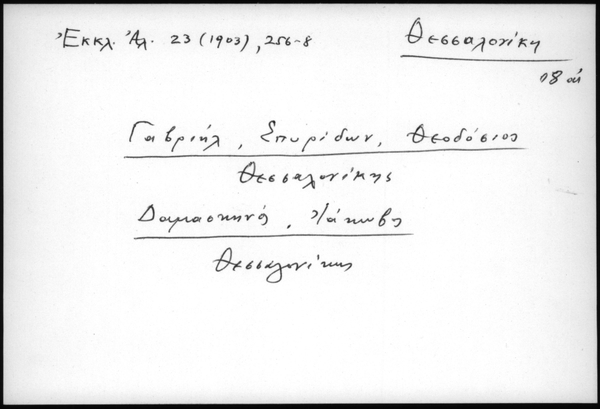 Ἐκκλ. Ἀλ. 23 (1903), 256-8
Θεσσαλονίκη
18 αἰ
Γαβριήλ, Σπυρίδων, Θεοδόσιος
Θεσσαλονίκης
Δαμασκηνός, Ἰάκωβος
Θεσσαλονίκης